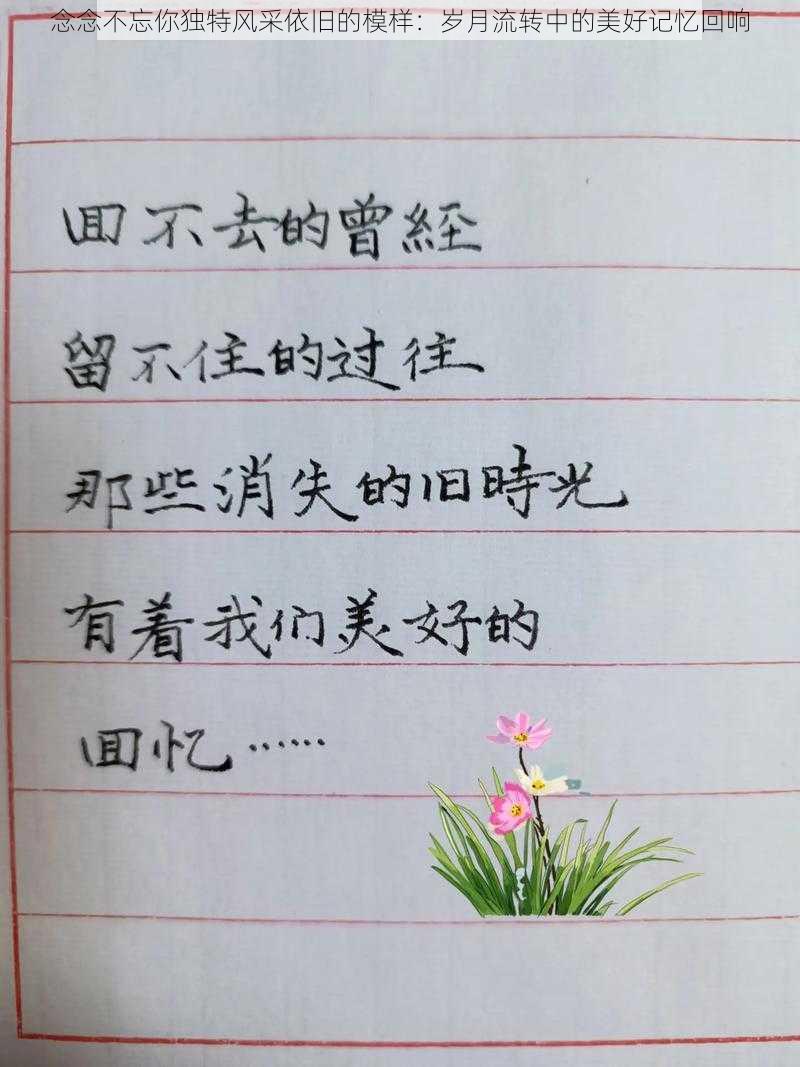 念念不忘你独特风采依旧的模样：岁月流转中的美好记忆回响
回不去的曾經
留不住的过往
那些消失的旧時光
有着我们美好的
回忆……